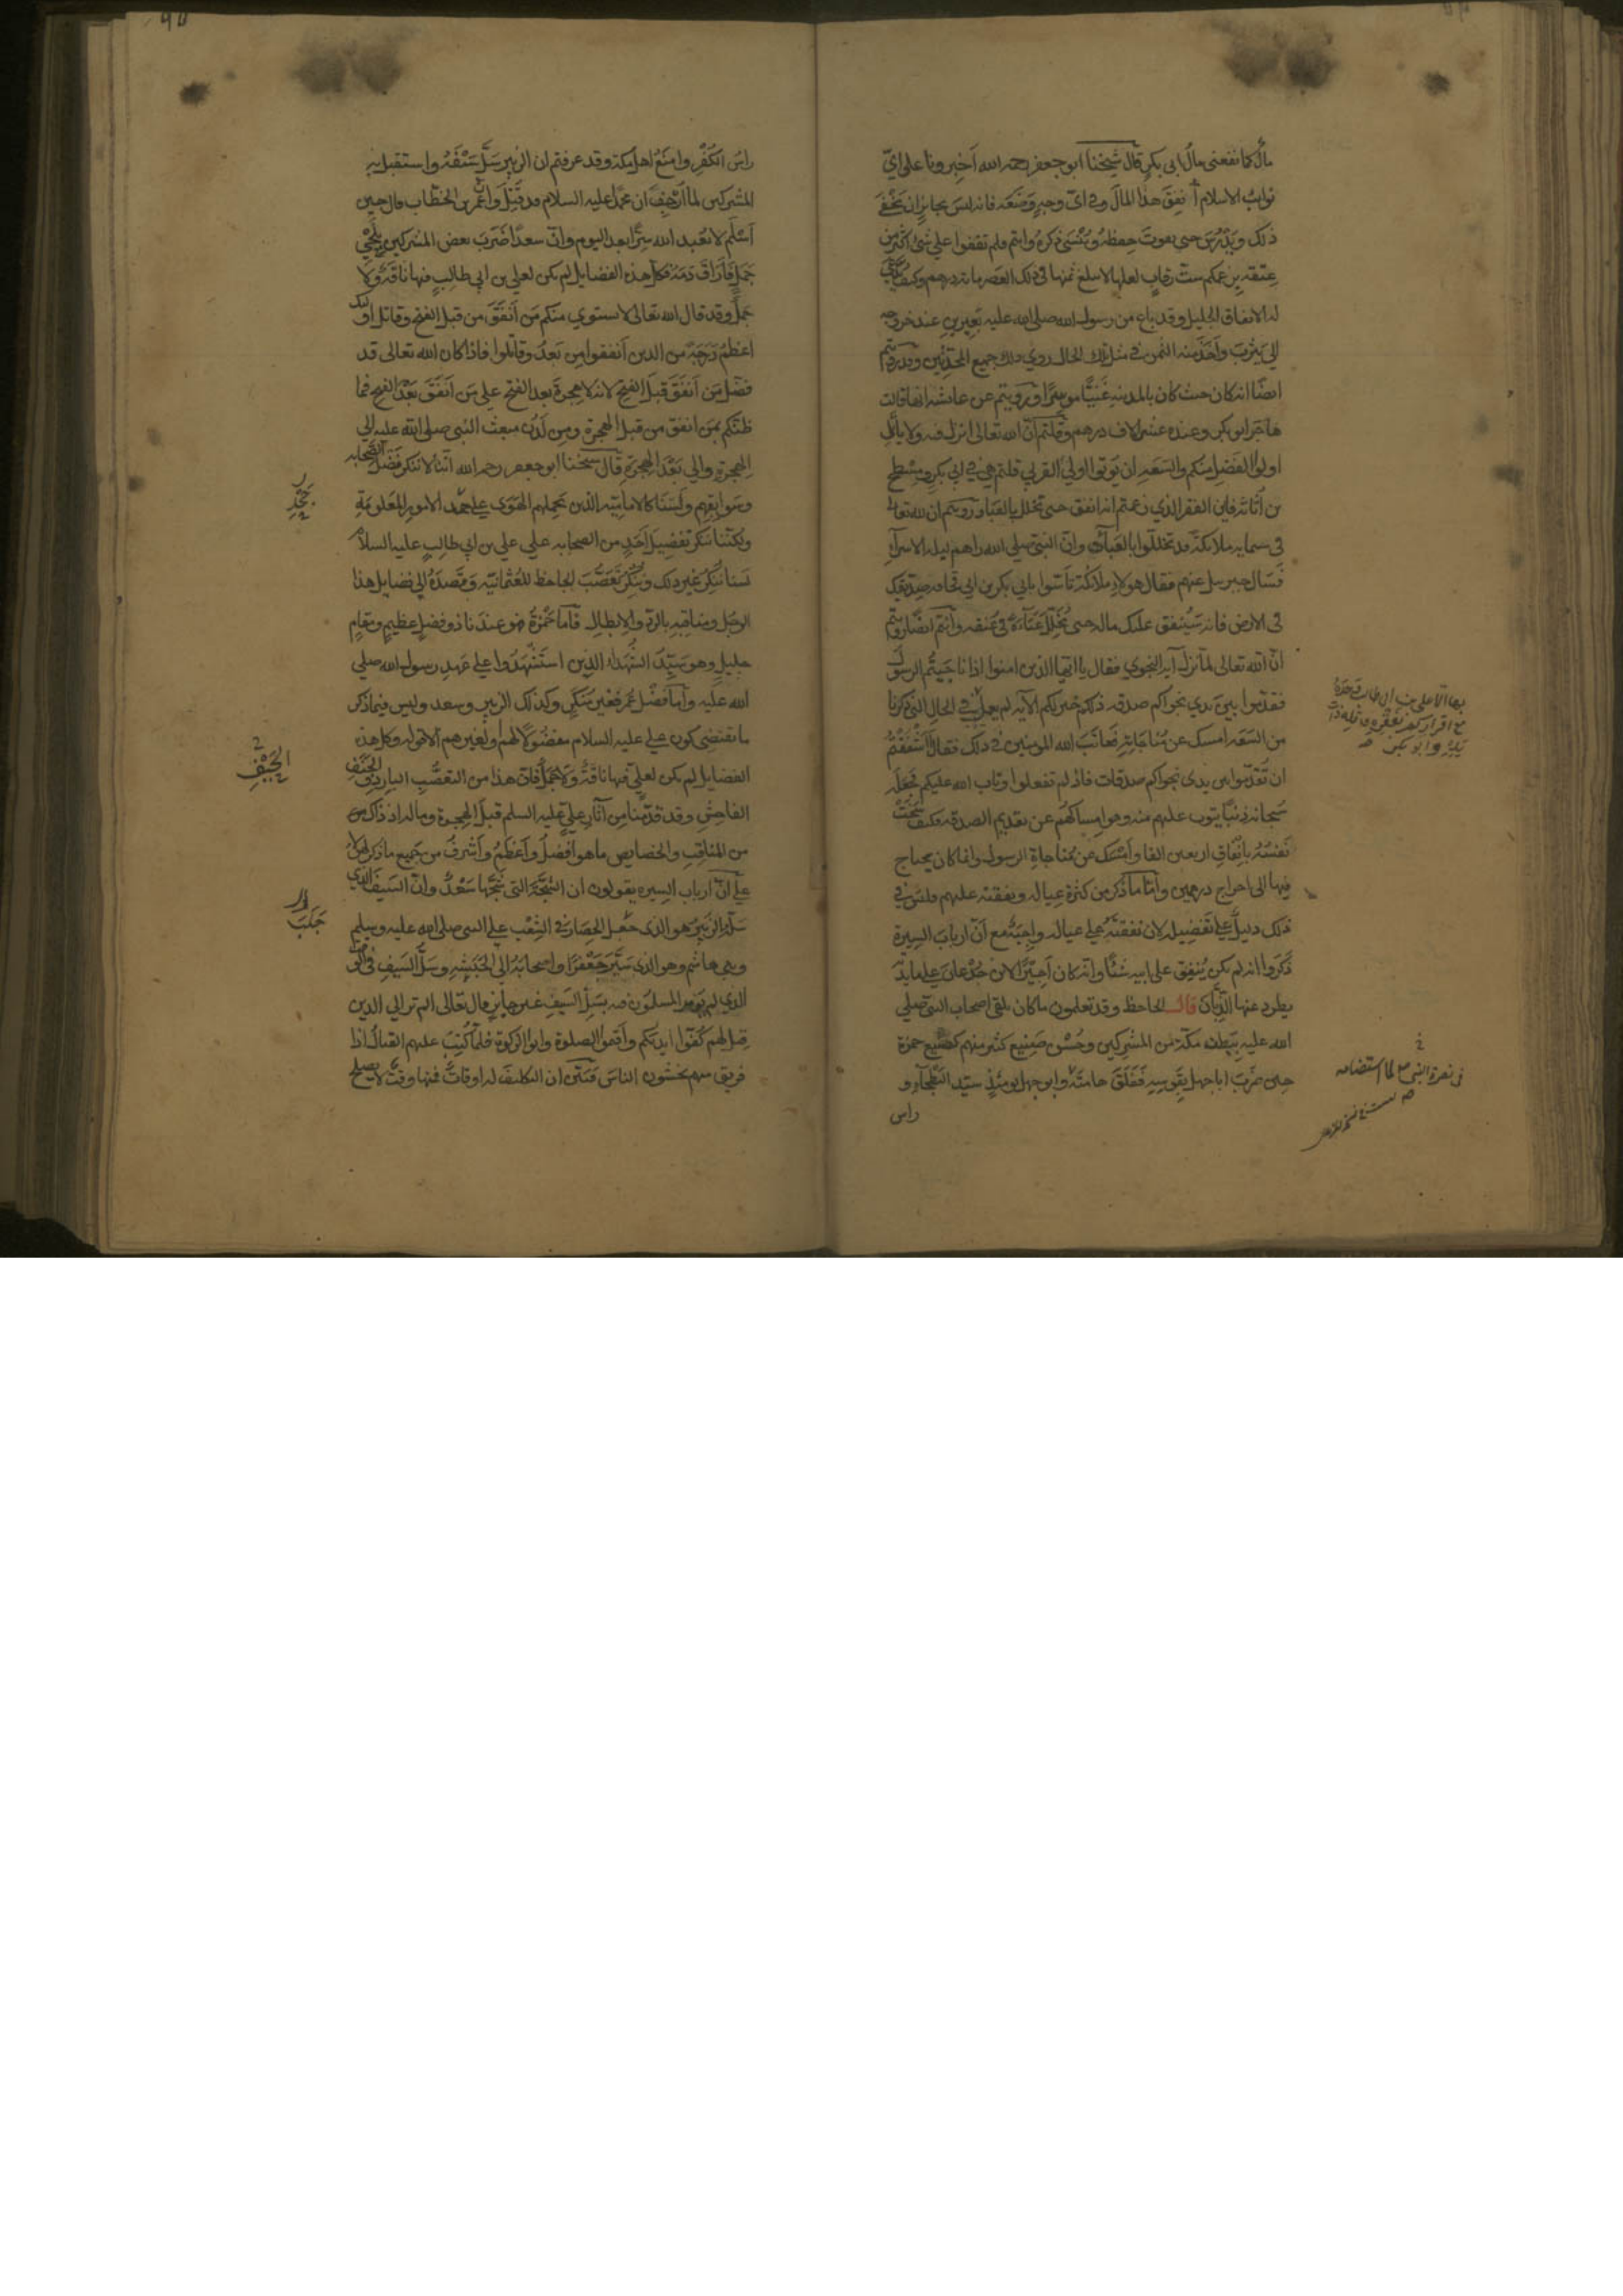 مال كما نفعنى مال ابى بكر قال شيخنا ابو جعفر رحمه الله اخبرونا على اىّ
نوايب الاسلام انفق هذا المال وفى اىّ وجه وضعه فانه ليس بجايز ان يخفى
ذلك ويدرس حتى يفوت حفظه وينسى ذكره وانتم فلم تقفوا على شئ اكثر من
عتقه بزعمكم ست رقاب لعلها لا يبلغ ثمنها فى ذلك العصر مائة درهم وكيف يدعى
له الانفاق الجليل وقد باع من رسول الله صلى الله عليه بعيرين عند خروجه
الى يثرب واخذ منه الثمن فى مثل تلك الحال روى ذلك جميع المحدثين وقد رويتم
ايضا انه كان حيث كان بالمدينه غنيّا موسرا ورويتم عن عائشه انها قالت
هاجر ابو بكر وعنده عشرة الاف درهم وقلتم ان الله تعالى انزل فيه ولا ياتل
اولوا الفضل منكم والسعه ان يوتوا اولى القربى قلتم هى فى ابى بكر ومسطح
بن اثاثه فاين الفقر الذى زعمتم انه انفق حتى تخلل بالعبا ورويتم ان لله تعالى
فى سمايه ملائكة قد تخللوا بالعباة وان النبى صلى الله راهم ليلة الاسرآ
فسال جبريل عنهم فقال هولاء ملائكة تاسّوا بابى بكر بن ابى قحافه صديقك
فى الارض فانه سينفق عليك ماله حتى يخلل عباءة فى عنقه وانتم ايضا رويتم
ان الله تعالى لما انزل آية النجوى فقال يا ايها الذين امنوا اذا ناجيتم الرسول
فقدموا بين يدى نجواكم صدقه ذلكم خير لكم الآيه لم يعمل فى الحال التى ذكرنا
من السعه امسك عن مناجاته فعاتب الله المومنين فى ذلك فقال ااشفقتم
ان تقدموا بين يدى نجواكم صدقات فاذ لم تفعلوا وتاب الله عليكم فجعله
سبحانه ذنبا يتوب عليهم منه وهو امساكهم عن تقديم الصدقه وكيف سخت
نفسه بانفاق اربعين الفا وامسك عن مناجاة الرسول وانما كان يحتاج
فيها الى اخراج درهمين وامّا ما ذكر من كثرة عياله ونفقته عليهم فليس فى
ذلك دليل على تفضيله لان نفقته على عياله واجبة مع انّ ارباب السيرة
ذكروا انه لم يكن ينفق على ابيه شئا وانه كان اجيرا لابن جدعان على مائدته
يطرد عنها الذبّان قال الجاحظ وقد تعلمون ما كان يلقى اصحاب النبى صلى
الله عليه ببطن مكة من المشركين وحسن صنيع كثير منهم كصنيع حمزة
حين ضرب ابا جهل بقوسه ففلق هامته وابو جهل يومئذ سيد البطحآء و
راس
بها الّا على بن ابى طالب وحده
مع اقراركم بفقره وقلة ذات
يده وابو بكر صح
فى نصرة النبى
راس الكفر وامنع اهل مكة وقد عرفتم ان الزبير سلّ سيفه واستقبل به
المشركين لما ارجف ان محمدا عليه السلام قد قتل وان عمر بن الخطاب قال حين
اسلم لا نعبد الله سرّا بعد اليوم وانّ سعدا ضرب بعض المشركين بلحى
جمل فاراق دمه فكل هذه الفضايل لم يكن لعلى بن ابى طالب فيها ناقة ولا
جمل وقد قال الله تعالى لا يستوى منكم من انفق من قبل الفتح وقاتل اولئك
اعظم درجة من الذين انفقوا من بعد وقاتلوا فاذا كان الله تعالى قد
فضّل من انفق قبل الفتح لانه لا هجرة بعد الفتح على من انفق بعد الفتح فما
ظنكم بمن انفق من قبل الهجرة ومن لدن مبعث النبى صلى الله عليه الى
الهجرة والى بعد الهجرة قال شيخنا ابو جعفر رحمه الله اننا لا ننكر فضل الصحابه
وسوابقهم ولسنا كالاماميه الذين يحملهم الهوى على جحد الامور المعلومة
ولكننا ننكر تفضيل احد من الصحابه على على بن ابى طالب عليه السلام
لسنا ننكر غير ذلك وننكر تعصّب الجاحظ للعثمانيّه وقصده الى فضايل هذا
الرجل ومناقبه بالردّ والابطال فامّا حمزة فهو عندنا ذو فضل عظيم ومقام
جليل وهو سيّد الشهداء الذين استشهدوا على عهد رسول الله صلى
الله عليه وامّا فضل عمر فغير منكر وكذلك الزبير وسعد وليس فيما ذكر
ما يقتضى كون على عليه السلام مفضولا لهم او لغيرهم الا قوله وكل هذه
الفضايل لم يكن لعلى فيها ناقة ولا جمل فانّ هذا من التعصّب البارد والحيف
الفاحش وقد قدّمنا من آثار على عليه السلم قبل الهجرة وما له اذ ذاك
من المناقب والخصايص ما هو افضل واعظم واشرف من جميع ما ذكر لهولاء
على انّ ارباب السيره يقولون ان الشجّة التى شجّها سعد وانّ السيف الذى
سلّه الزبير هو الذى جعل الحصار فى الشعب على النبى صلى الله عليه وسلم
وبنى هاشم وهو الذى سيّر جعفرا واصحابه الى الحبشه وسلّ السيف فى الوقت
الذى لم يومر المسلمون فيه بسلّ السيف غير جايز قال تعالى الم تر الى الذين
قيل لهم كفّوا ايديكم واقيموا الصلوة واتوا الزكوة فلما كتب عليهم القتال اذا
فريق منهم يخشون الناس فتبيّن ان التكليف له اوقات فمنها وقت لا يصلح
جحد
الحيف
جلب